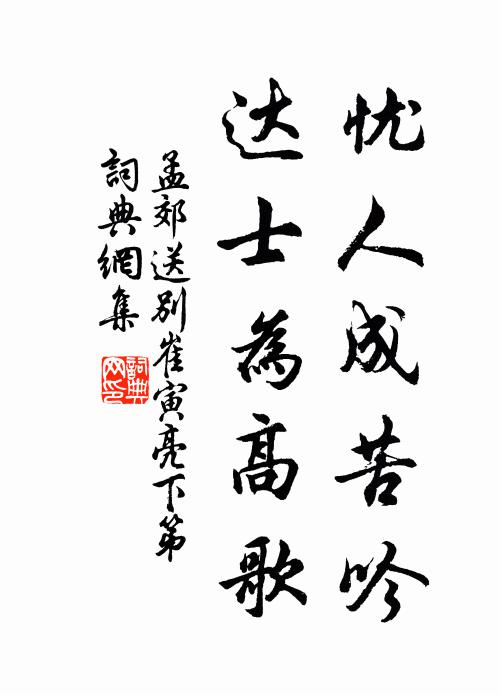 忧人成苦吟
达士為高歌
孟郊送别崔寅亮下第
詞典網集
詞典網印